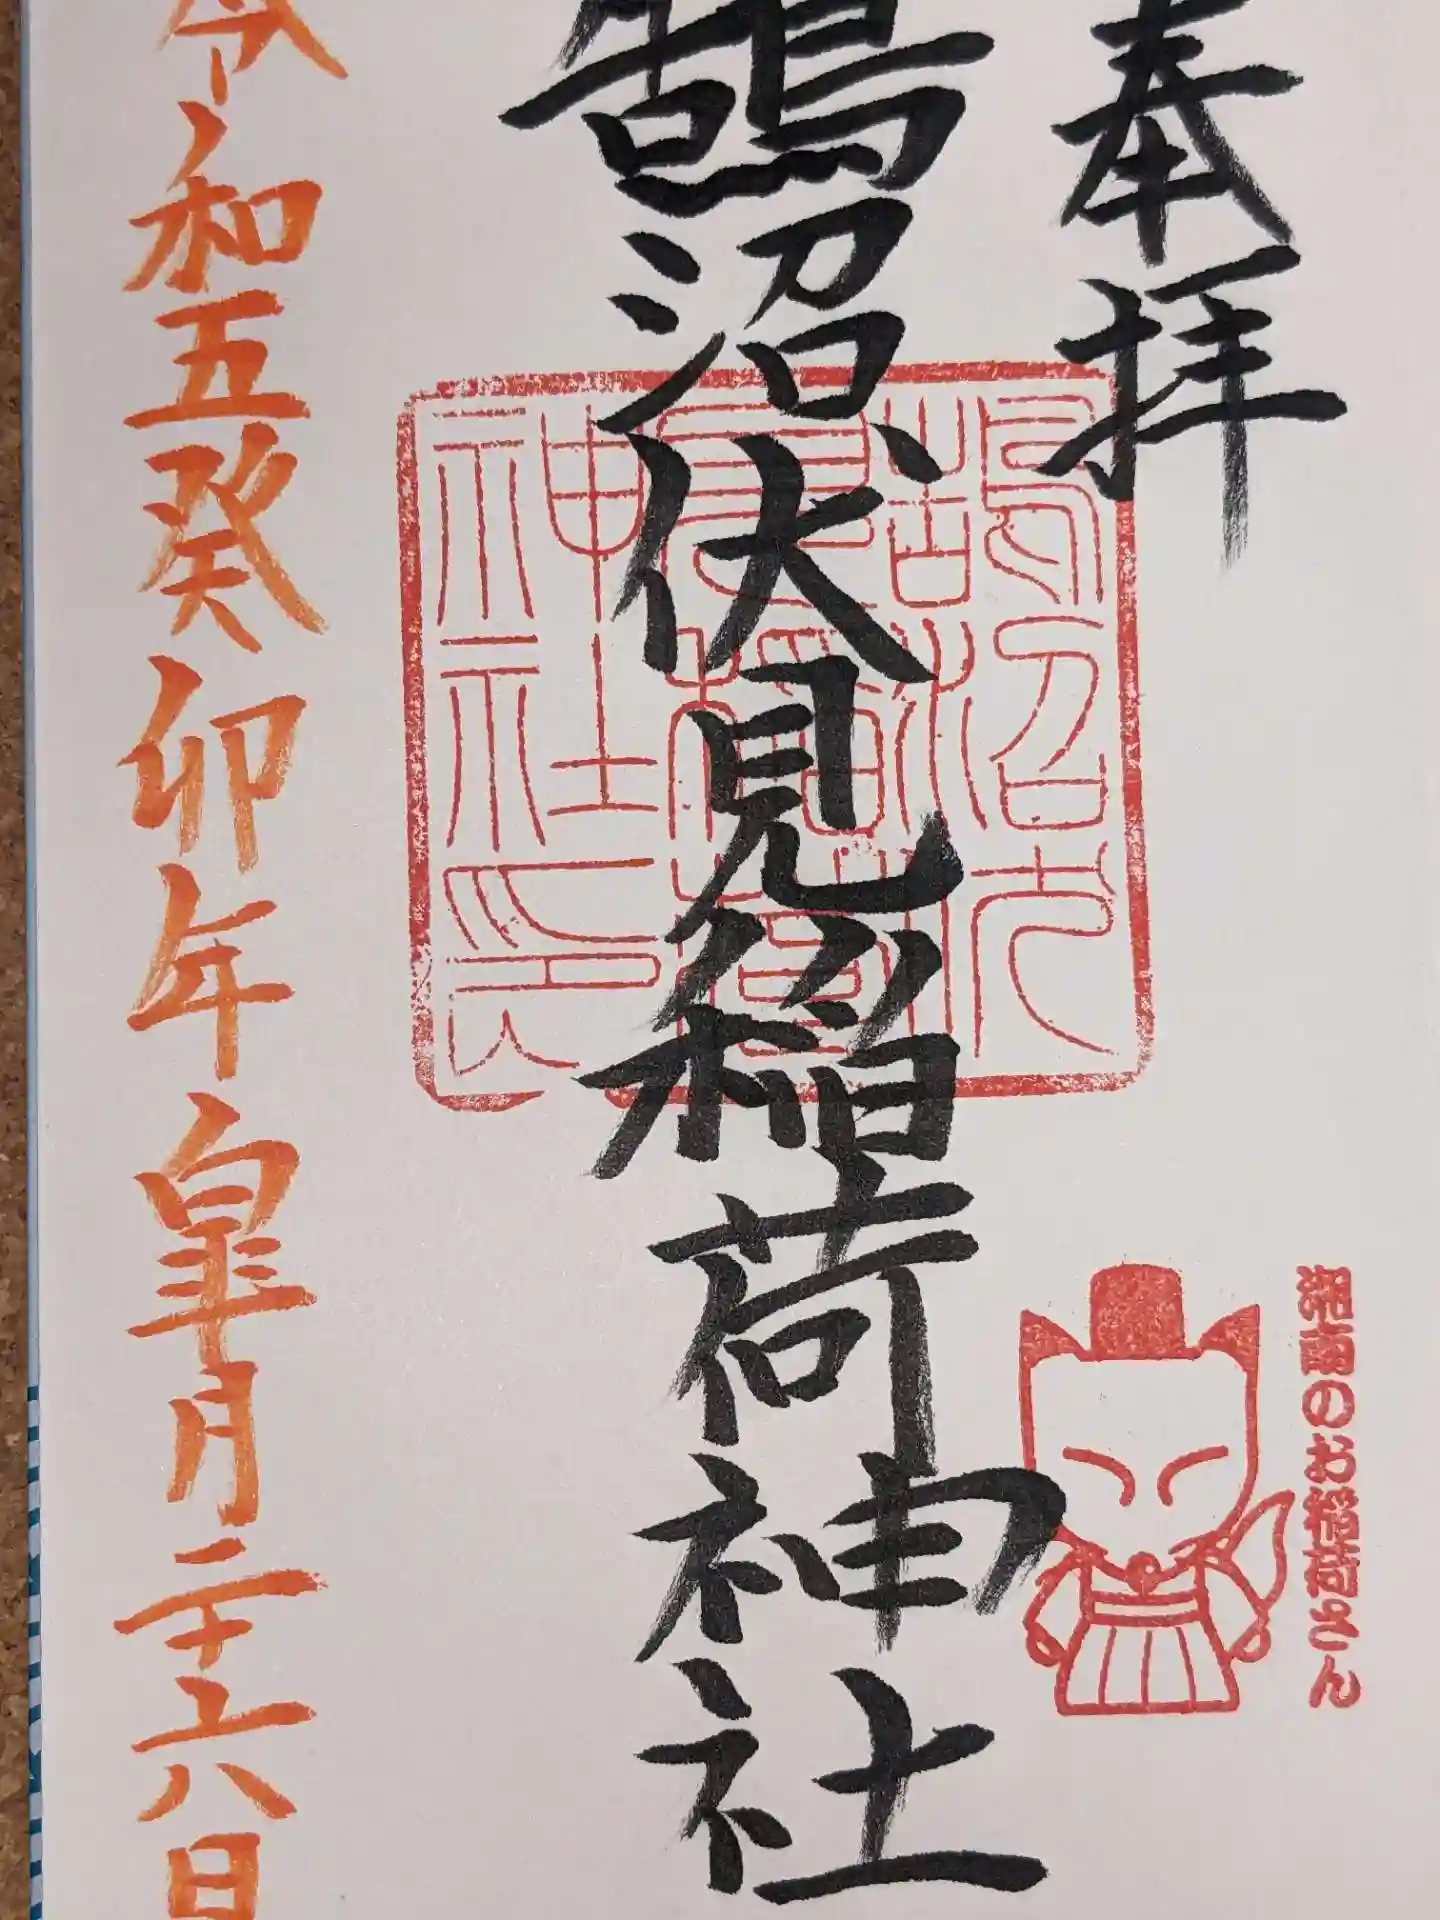 奉拝
鵠沼伏見稲荷神社
鵠沼伏見稲荷神社印
湘南のお稲荷さん
令和五癸卯年皐月二十六日